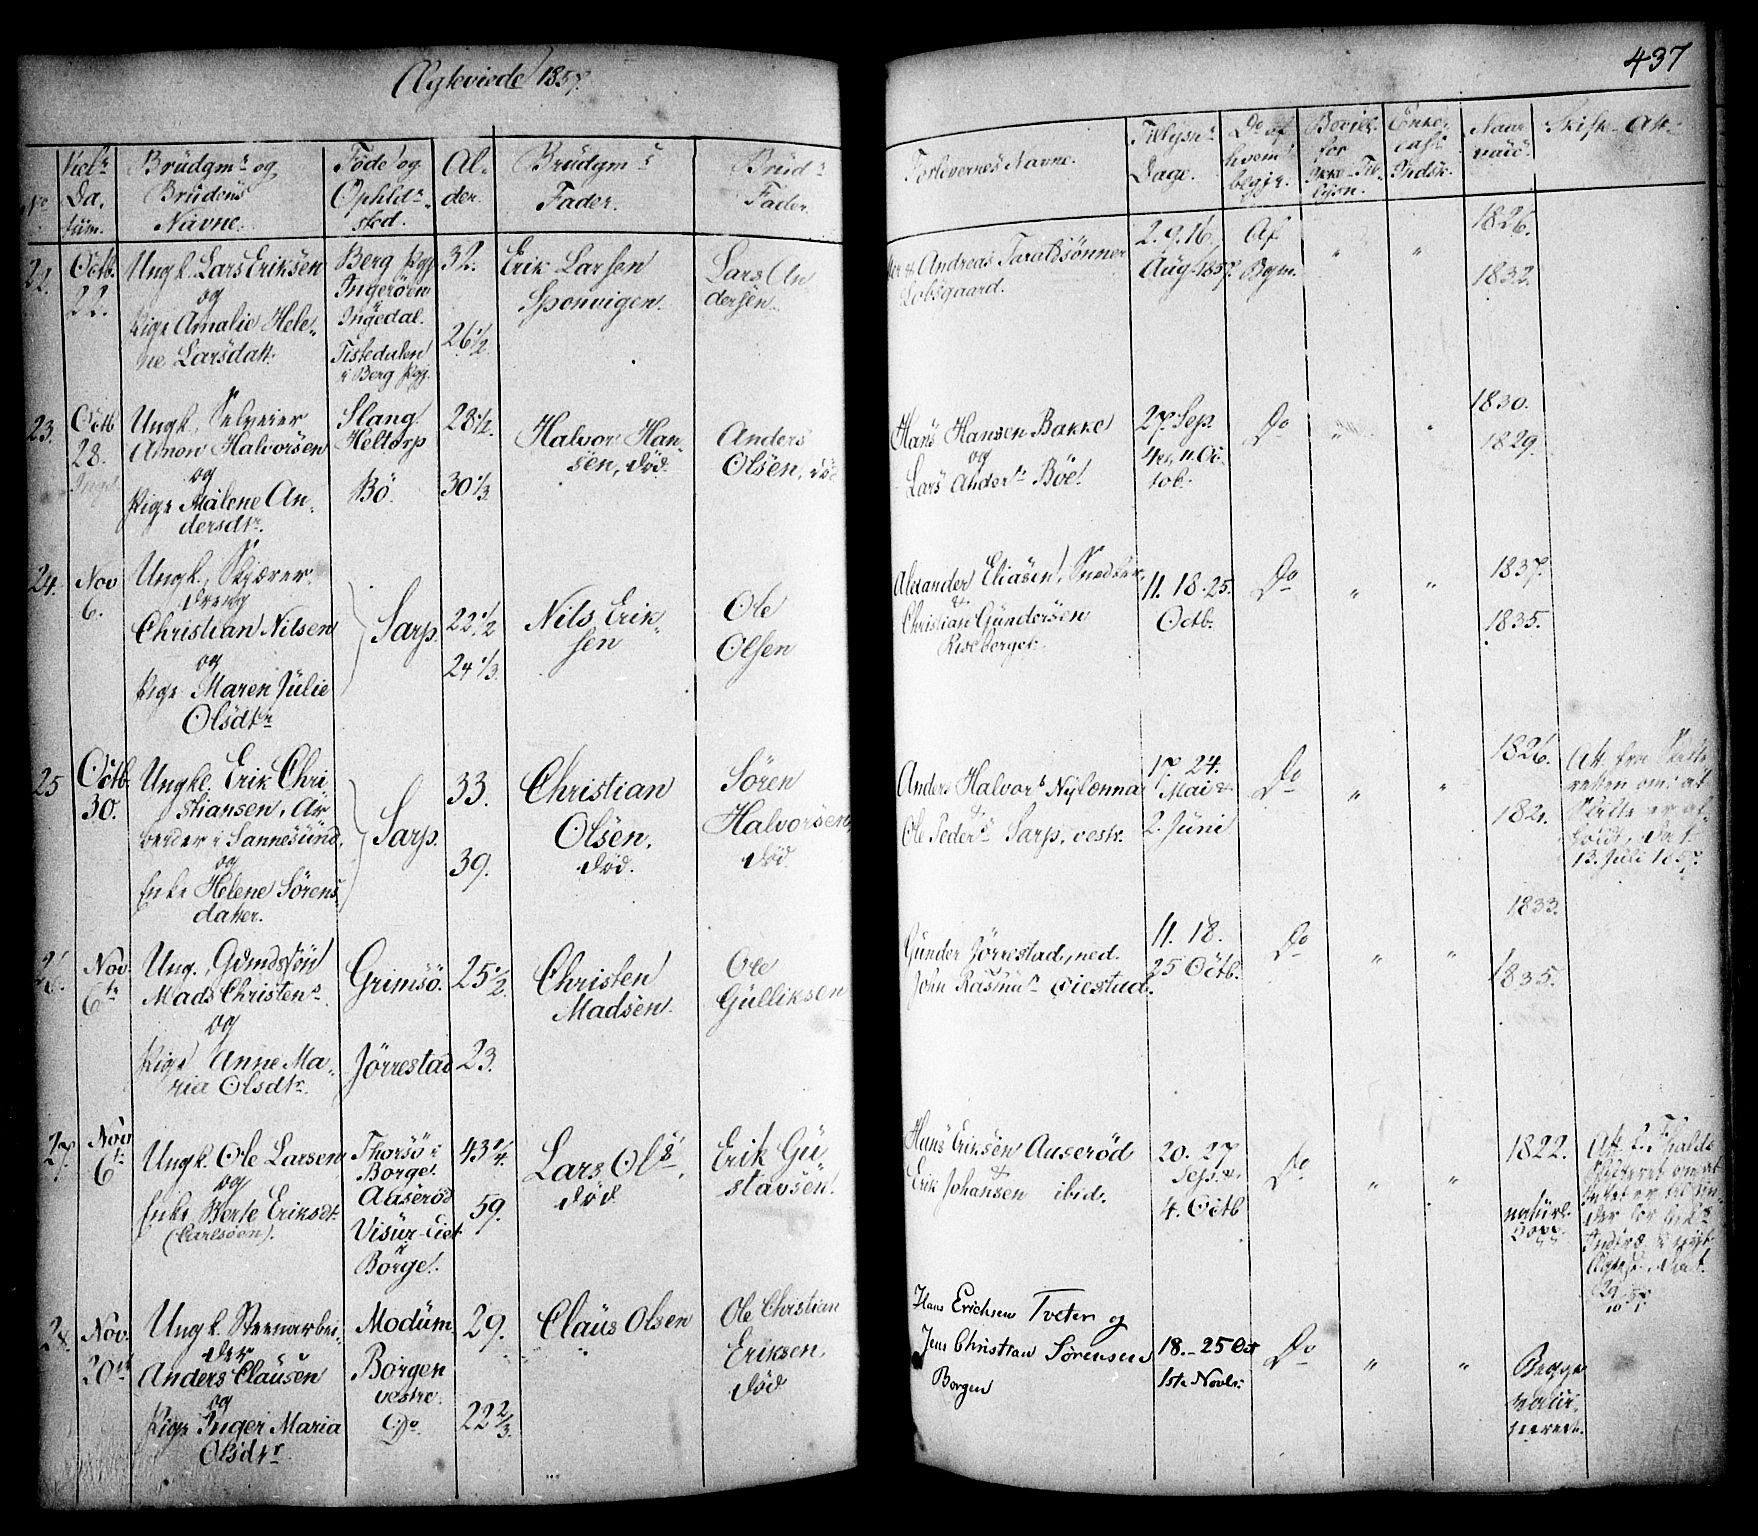 Ægteviede 1857.
437
No
Viels
Da-
tum.
Brüdgms og
Brüdens
Navne.
Føde og
Ophlds
sted.
Al-
der.
Brüdgms
Fader.
Bruds
Fader.
Forlovernes Navne.
Tillysns
Dage.
Do af
hvem
begjr.
Bevill.
for
Enke-
Indsk.
Skifte Att.
22.
Octb.
22.
Ungk. Lars Eriksen
og
Pige Amalie Hele-
ne Larsdatt.
Berg Pgj.
Ingerøen
Ingedal.
Tistedalen
i Berg Pgj.
32.
26 1/2
Erik Larsen
Sponvigen.
Lars An
dersen.
& Andreas Taraldsönner
Lobsgaard.
2. 9. 16.
Aug. 1857.
Af
Bgm.
" "
1826.
1832.
23.
Octb
28.
Ungk. Selveier
Amon Halvorsen
og
Pige Malene An-
dersdtr.
Slang
Heltorp
Bö.
28 1/2.
30 1/3.
Halvor Han-
sen, död.
Anders
Olsen, död
Hans Hansen Bakke
og
Lars Anders Böe
27. Sep.
4de, 11. Oc-
tob.
Do
" "
1830.
1829.
24.
Nov
6.
Ungk., Skjærer
dreng
Christian Nilsen
og
Pige Maren Jülie
Olsdtr
Sarp.
22 1/2
24 1/3.
Nils Erik-
sen
Ole
Olsen
Alexander Eliasen, Snedker,
&
Christian Gündersen
11. 18. 25.
Octb.
Do
" "
1837.
1835.
25
Octb.
30.
Ungk. Erik Chri-
stiansen, Ar
beider i Sannesünd,
og
Enke Helene Sörens
datter.
Sarp.
33.
39.
Christian
Olsen.
död.
Sören
Halvorsen,
död.
Anders Halvors Nylænna
&
Ole Peders Sarp, vestr.
17. 24.
Mai &
2. Jüni
Do
" "
1826.
182
Att. fra Skifte-
retten om at
Skifte er af-
holdt, dat.
13. Juli 1857.
26.
Nov.
6te
Ung., Gdmdssön
Mads Christens
og
Pige Anne Ma-
ria Olsdtr.
Grimsö.
Jörrestad
25 1/2.
23.
Christen
Madsen.
Ole
Gülliksen
Günder Jörrestad, ned.
John Rasmus Eiestad.
11. 18.
25 Octb.
Do
" "
1833.
1835.
27.
Novr
6te
Ungk. Ole Larsen
og
Enke Berte Eriksdt.
(Carlsöen).
Thorsö i
Borge.
Aaseröd
Visür-Eiet
i
Borge.
43 1/4.
59.
Lars Ols
död.
Erik Gü-
stavsen.
Hans Eriksen Aaseröd
&
Erik Johansen ibid.
20. 27
Seps. &
4. Octb
Do
" "
1822.
natürl.
28.
Nov.
20de
Ungk. Steenarbei-
der
Anders Claüsen
og
Pige Inger Maria
Olsdtr
Modüm
Borgen
vestre.
Do.
29.
22 2/3.
Claüs Olsen
Ole Christian
Eriksen,
död
Hans Erichsen Tveten og
Jens Christian Sørensen
Borgen
18. - 25 Oct
1ste Novbr.
Do
" "
Begge